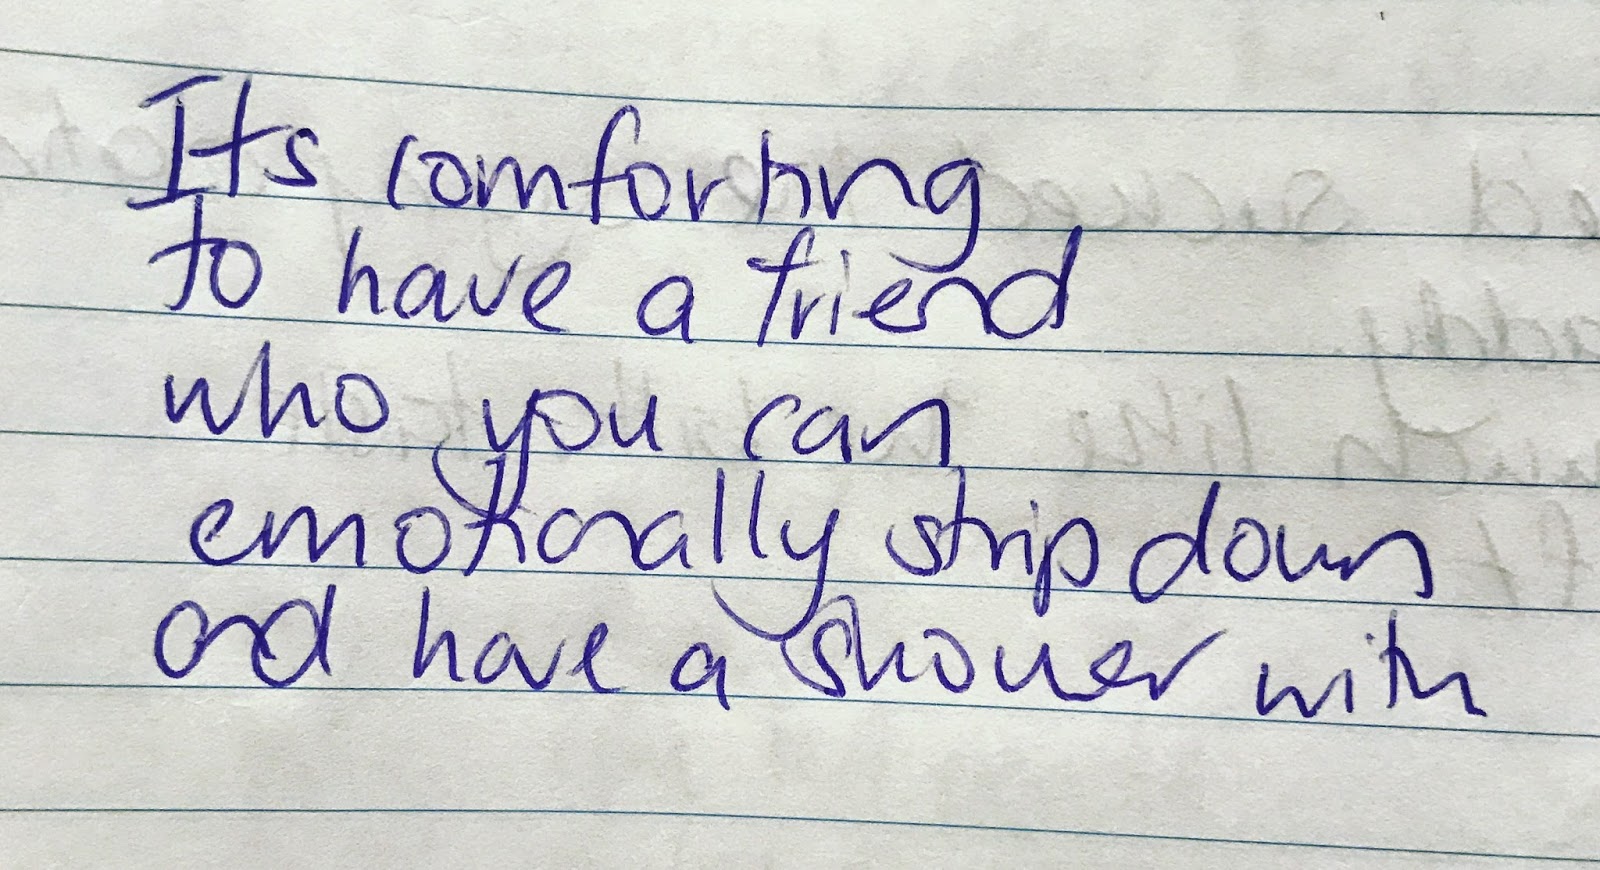 Its comforting
to have a friend
who you can
emotionally strip down
and have a shower with